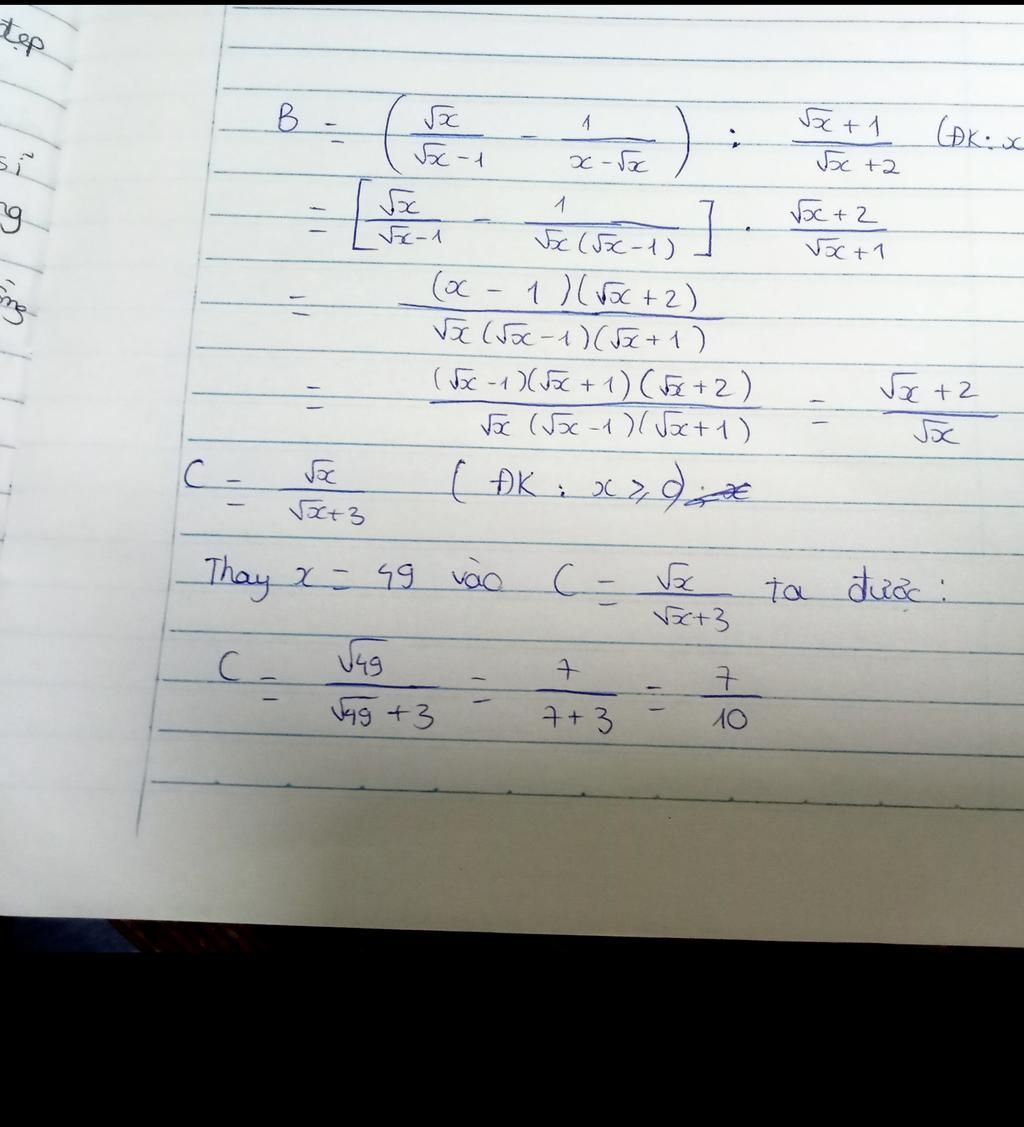 đẹp
sĩ
ng
B = (√x/(√x - 1) - 1/(x - √x)) : (√x + 1)/(√x + 2) (ĐK: x
= [√x/(√x - 1) - 1/(√x(√x - 1))] . (√x + 2)/(√x + 1)
= (x - 1)(√x + 2)/(√x(√x - 1)(√x + 1))
= (√x - 1)(√x + 1)(√x + 2)/(√x(√x - 1)(√x + 1)) = (√x + 2)/√x
C = √x/(√x + 3) (ĐK : x ≥ 0)
Thay x = 49 vào C = √x/(√x + 3) ta được :
C = √49/(√49 + 3) = 7/(7 + 3) = 7/10